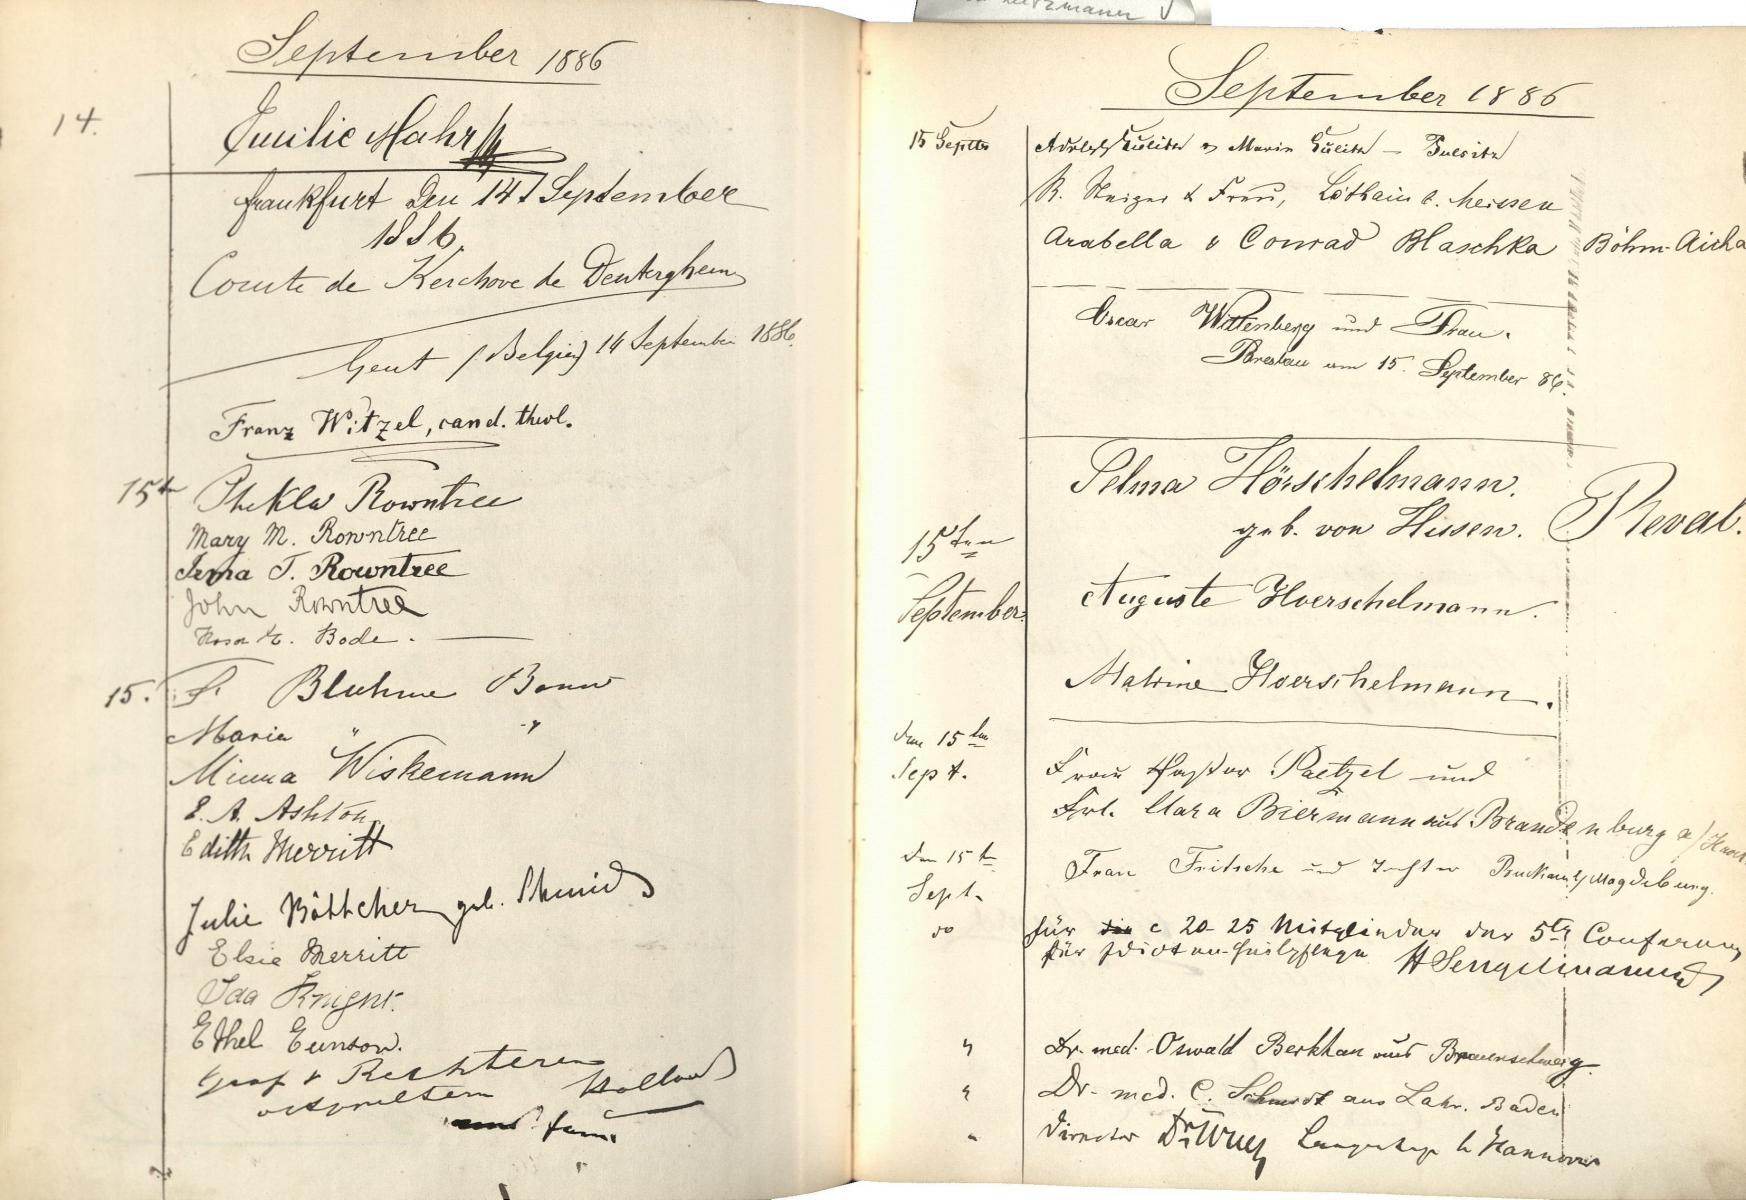 September 1886
14.
Emilie Mahr
Frankfurt den 14 September
1886.
Comte de Kerchove de Denterghem
Gent (Belgien) 14 September 1886.
Franz Witzel, cand. theol.
15t Thekla Rowntree
Mary M. Rowntree
Irma T. Rowntree
John Rowntree
Rosa E. Bode.
15. F. Bluhme Bonn
Maria " "
Minna Wiskemann
E. A. Ashton
Edith Merritt
Julie Böttcher geb. Schmid
Elsie Merritt
Ida Knight.
Ethel Eunson.
Graf v Rechteren
Holland
und fam.
September 1886
15 Septb
Marie
R. Steiger & Frau, Löthain b. Meissen
Arabella & Conrad Blaschka Böhm-Aicha
Oscar Wittenberg und Frau.
Breslau am 15. September 86.
Selma Hörschelmann.
geb. von Hissen. Reval.
15ten
September.
Auguste Hoerschelmann.
Malvine Hoerschelmann.
den 15ten
Sept.
Frau Pastor Paetzel und
Frl. Clara Biermann aus Brandenburg a/Havel
den 15t
Sept.
Frau Fritsche und Tochter Buckau b/Magdeburg.
do für c 20-25 Mitglieder der 5ten Conferenz
für Idioten-Heilpflege H Sengelmann
" Dr. med. Oswald Berkhan aus Braunschweig.
" Dr. med. C. Schmidt aus Lahr. Baden
" Director Dr Wulff Langenhagen b Hannover